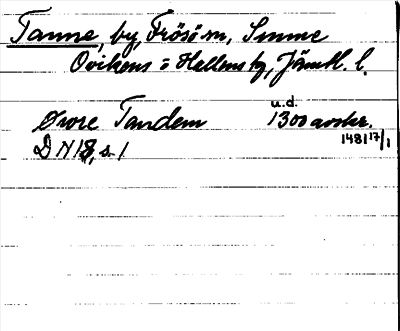 Tanne, by, Frösö sn, Sunne
Ovikens o Hallens tg, Jämtl. l.
u.d.
Øvre Tandem 1300 avskr.
1481 17/1
DN 18, s. 1